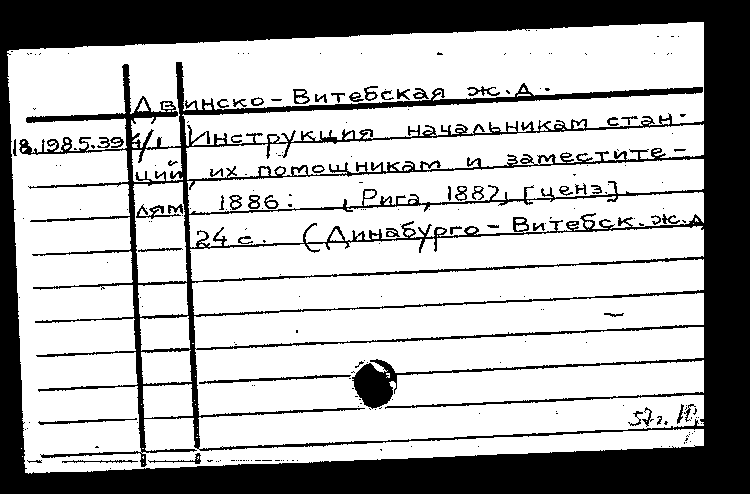 Двинско-Витебская ж.д.
18.198.5.394/1 Инструкция начальникам стан-
ций, их помощникам и заместите-
лям. 1886: [Рига, 1887, [ценз.].
24 с. (Динабурго-Витебск.ж.д
57г.